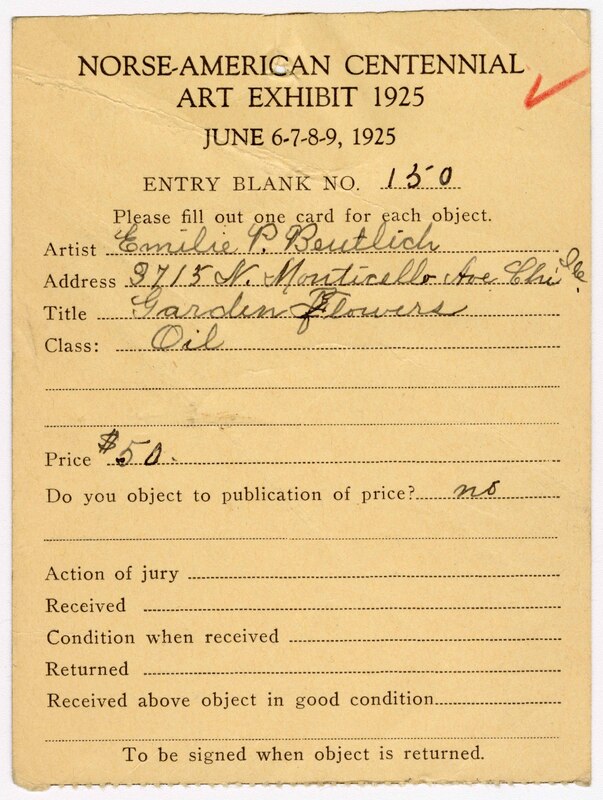 NORSE-AMERICAN CENTENNIAL
ART EXHIBIT 1925
JUNE 6-7-8-9, 1925
ENTRY BLANK NO. 150
Please fill out one card for each object.
Artist Emilie P. Beutlich
Address 3715 N. Monticello Ave Chi Ill.
Title Garden Flowers
Class: Oil
Price $50.
Do you object to publication of price? no
Action of jury
Received
Condition when received
Returned
Received above object in good condition
To be signed when object is returned.